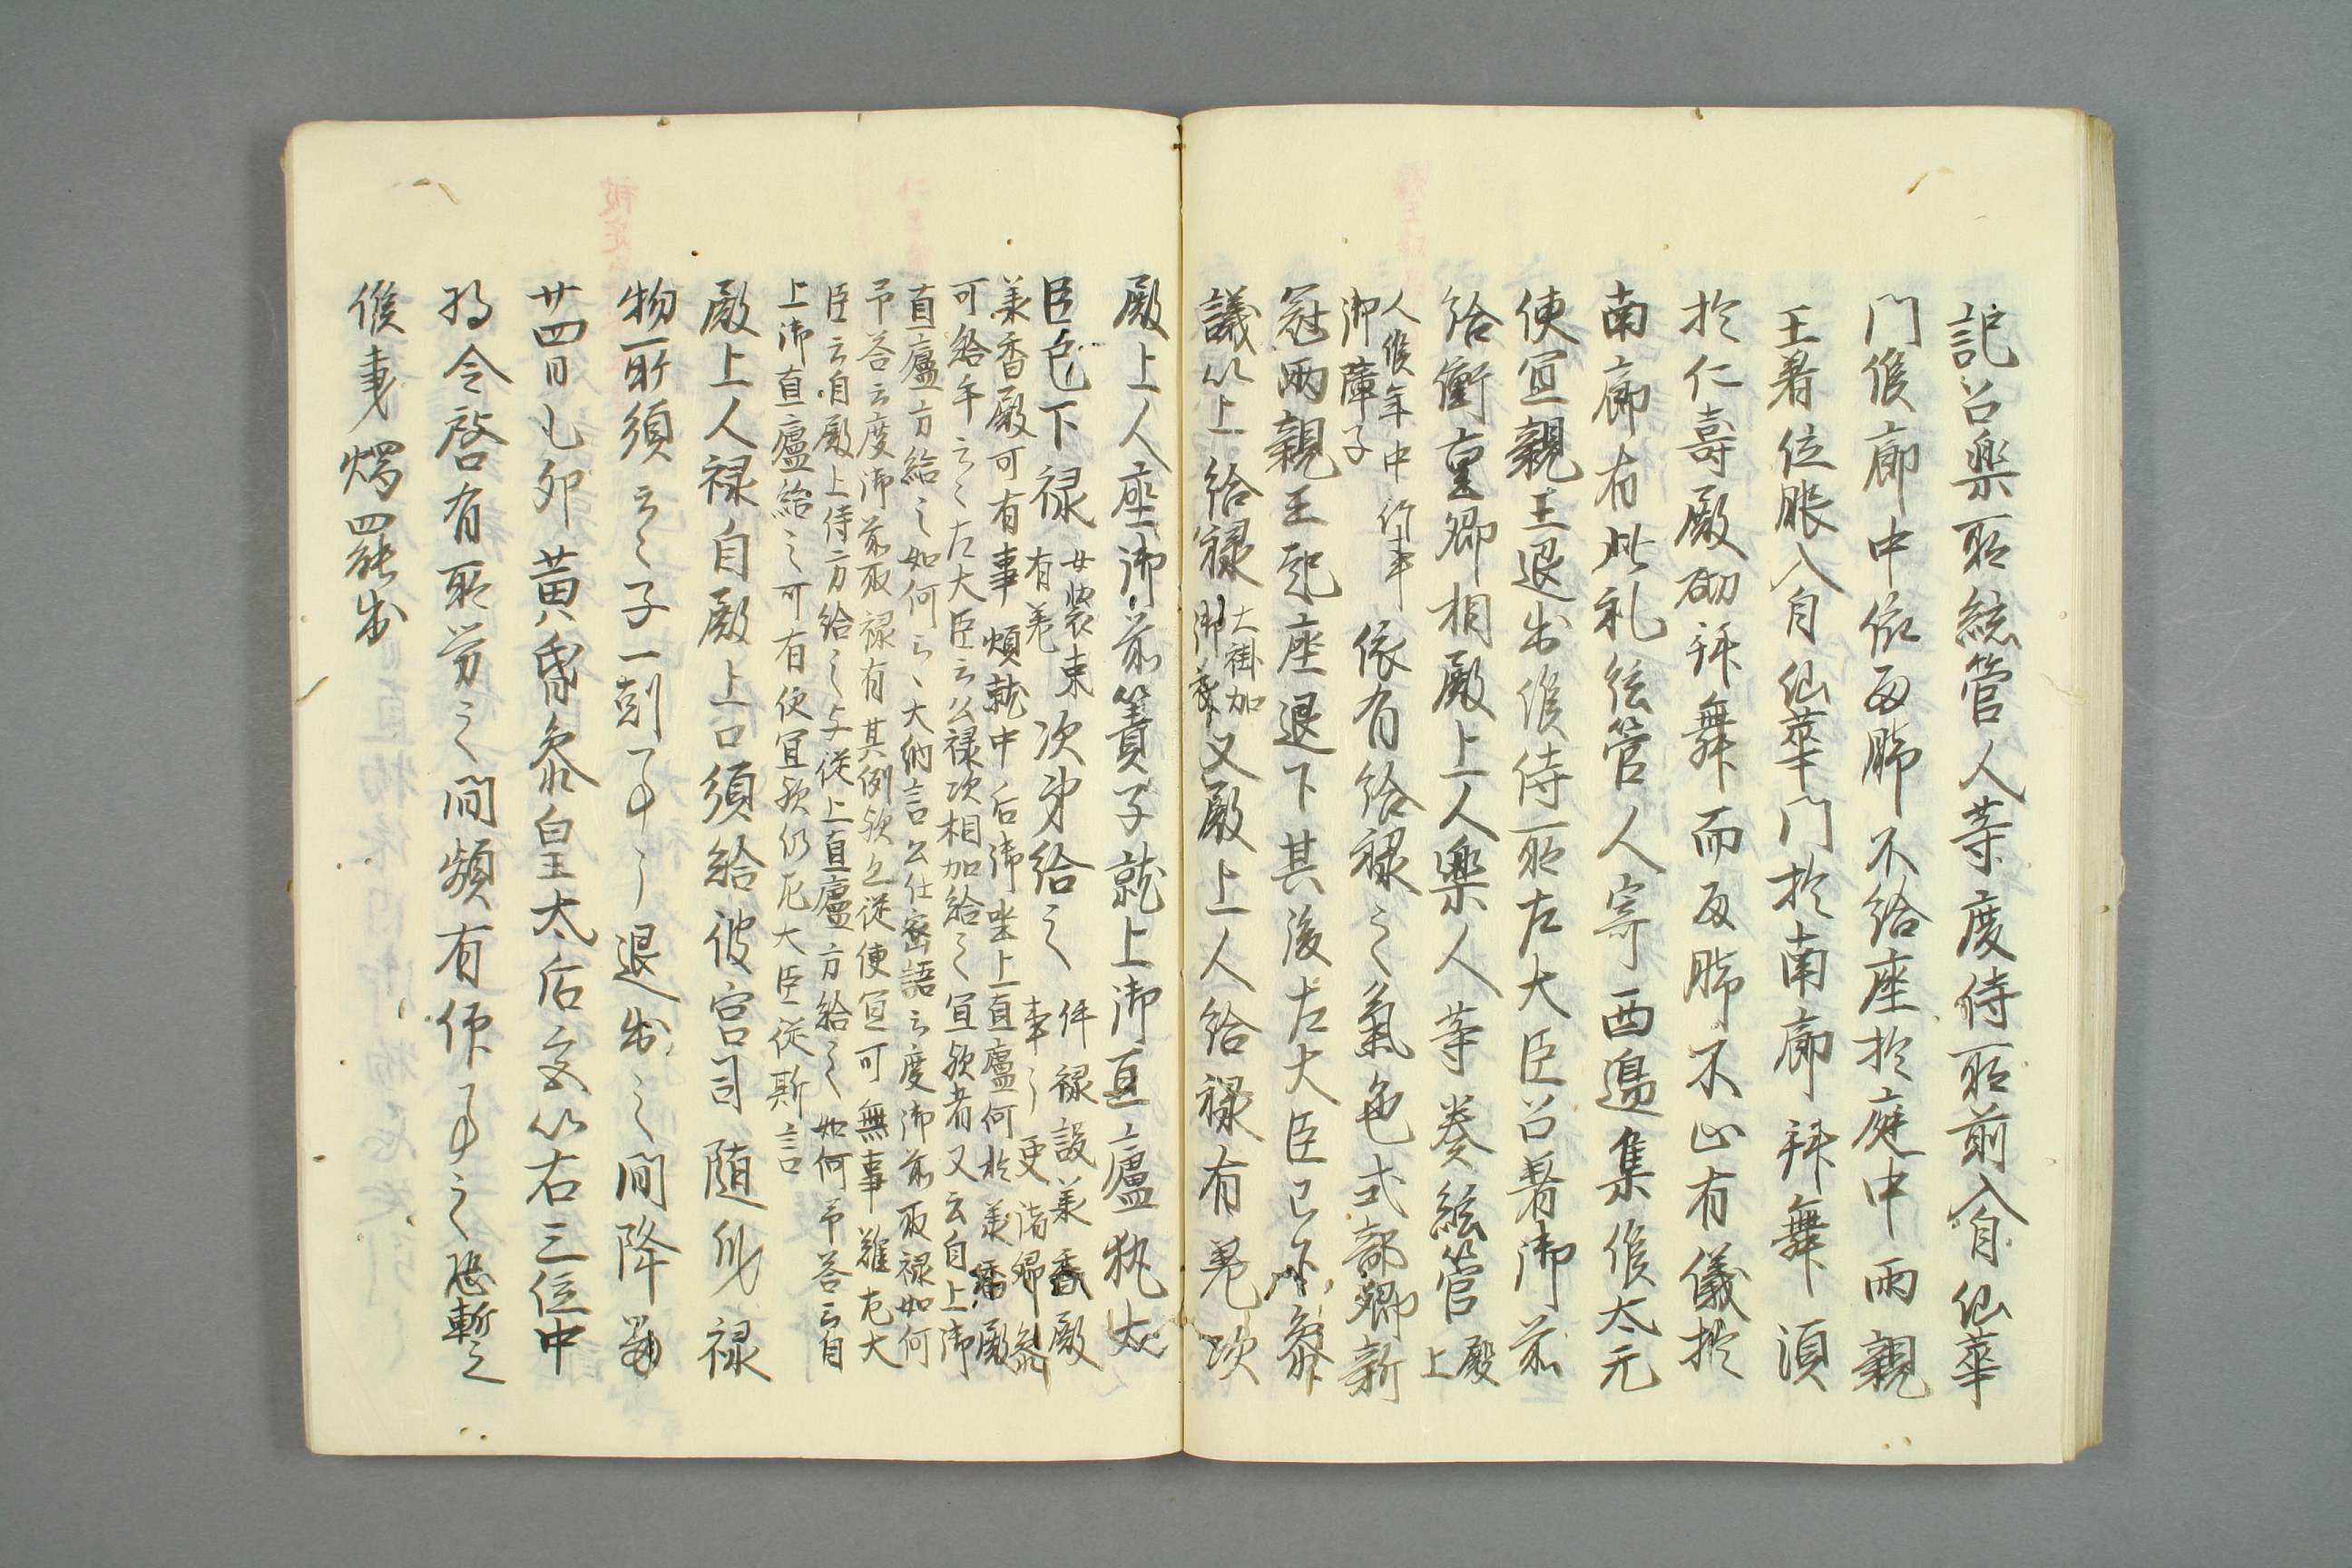 記召楽所絃管人等度侍所前入自仙華
門候廊中依雨脚不給座於庭中両親
王着位服入自仙華門於南廊拝舞須
於仁寿殿砌拝舞而雨脚不止有儀於
南廊有此礼絃管人寄西邉集候太元
使宣親王退出候侍所左大臣召着御前
給衝重卿相殿上人楽人等奏絃管殿上
人候年中行事
御障子
依有給禄之氣色式部卿新
冠両親王起座退下其後左大臣已下参
議以上給禄大褂加
御衣又殿上人給禄有差次
殿上人座御前簀子就上御直廬執
臣已下禄女装束
有差次第給之件禄設美香殿
事
美香殿可有事煩就中后御坐上直廬何於美香殿
可給乎云々左大臣云公禄次相加給之宜欤者又云自上御
直廬方給之如何云々大納言公任密語云度御前取禄如何
予答云度御前取禄有其例欤又従便宜可無事難左大
臣云自殿上侍方給之与従上直廬方給之如何予答云自
上御直廬給之可有便宜欤仍左大臣従斯言
殿上人禄自殿上口須給彼宮司随身禄
物所須云々子一剋事了退出之間降雨
廿四日乙卯黄昏参皇太后宮以右三位中
将令啓有所労之間頻有仰事之恐暫之
候事